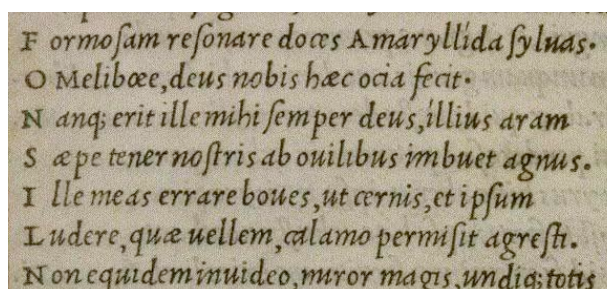 F ormoſam reſonare doces Amaryllida ſyluas.
O Melibœe, deus nobis hæc ocia fecit.
N anq; erit ille mihi ſemper deus, illius aram
S æpe tener noſtris ab ouilibus imbuet agnus.
I lle meas errare boues, ut cernis, et ipſum
L udere, quæ uellem, calamo permiſit agreſti.
N on equidem inuideo, miror magis, undiq; totis